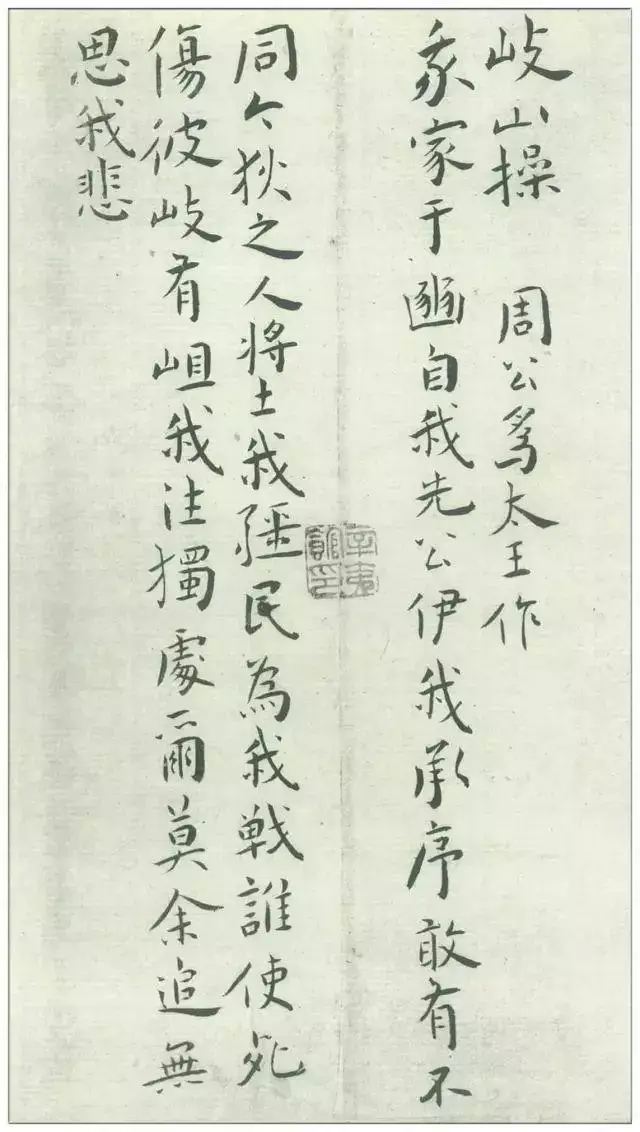 岐山操 周公為太王作
我家于豳自我先公伊我承序敢有不
同今狄之人将土我疆民為我戦誰使死
傷彼岐有岨我往獨處爾莫余追無
思我悲
辛夷館印